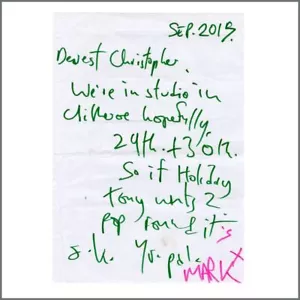 SEP. 2015.
Dearest Christopher,
We're in studio in
hopefully,
29th. + 30th.
So if Holiday
Tony wants 2
pop round it's
o.k. Yr. pal.
MARK X